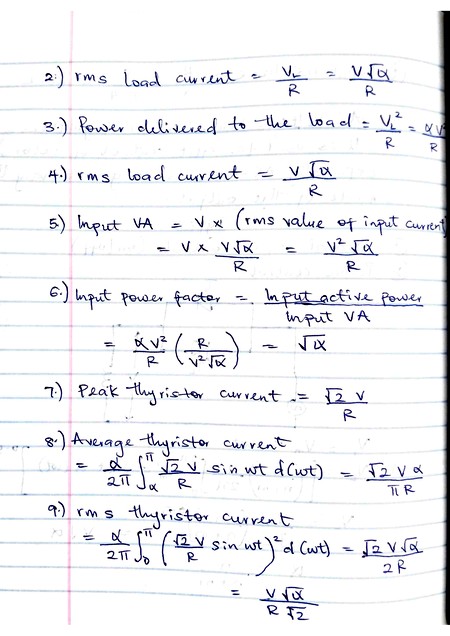 2.) rms load current = V_L/R = V√α/R
3.) Power delivered to the load = V_L²/R = αV/R
4.) rms load current = V√α/R
5.) Input VA = V × (rms value of input current
= V × V√α/R = V²√α/R
6.) Input power factor = Input active power/Input VA
= αV²/R (R/V²√α) = √α
7.) Peak thyristor current = √2 V/R
8.) Average thyristor current
= α/2π ∫_α^π √2 V/R sin wt d(wt) = √2 V α/πR
9.) rms thyristor current
= α/2π ∫_0^π (√2 V/R sin wt)² d(wt) = √2 V√α/2R
= V√α/R√2